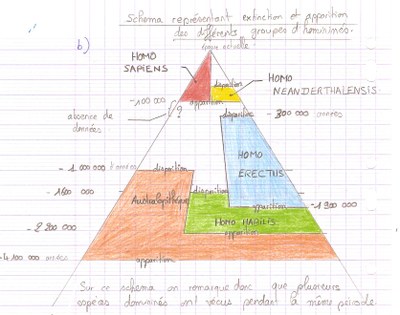 Schema représentant extinction et apparition
des différents groupes d'hominines.
b)
époque actuelle
HOMO
SAPIENS
disparition
HOMO
NEANDERTHALENSIS
-100 000
apparition
?
absence de
données
disparition
-300 000 années
HOMO
ERECTUS
-1 000 000 d'années
disparition
-1600 000
disparition
Australopithèque
apparition
-1 900 000
HOMO HABILIS
-2 200 000
apparition
-4 100 000 années
apparition
Sur ce schema on remarque donc que plusieurs
espèces dominées ont vécus pendant la même période.